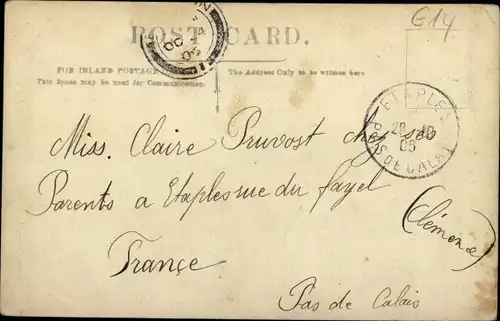 E14
POST CARD.
FOR INLAND POSTAGE
This Space may be used for Communication.
The Address Only to be written here
OC 4
05
ETAPLES
PAS DE CALAIS
Miss. Claire Pruvost chez ses
Parents a Etaples rue du fayel
(Clémence)
France
Pas de Calais